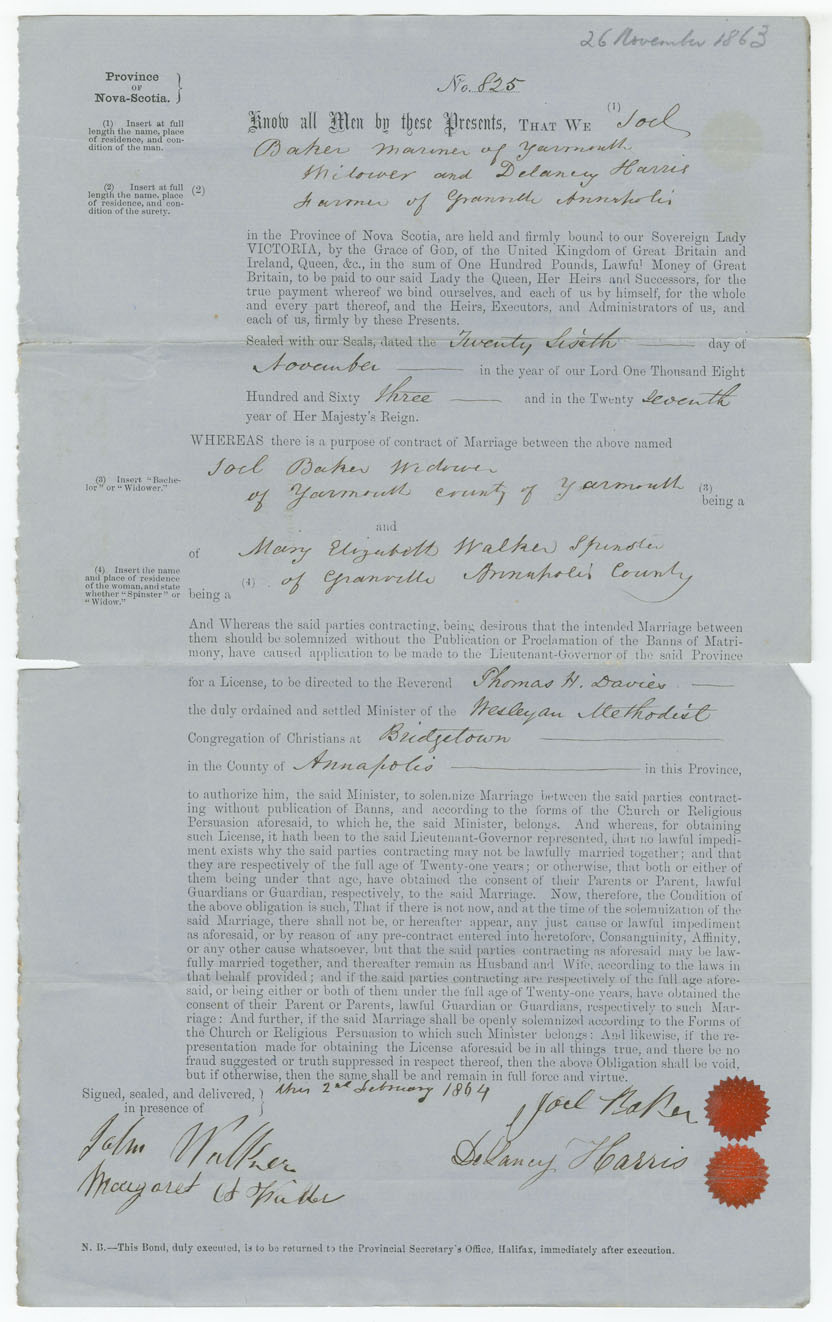 26 November 1863
Province
OF
Nova-Scotia.
No. 825
(1) Insert at full
length the name, place
of residence, and con-
dition of the man.
Know all Men by these Presents, THAT WE (1) Joel
Baker mariner of Yarmouth
Widower and Delancey Harris
(2) Insert at full
length the name, place
of residence, and con-
dition of the surety.
(2)
Farmer of Granville Annapolis
in the Province of Nova Scotia, are held and firmly bound to our Sovereign Lady
VICTORIA, by the Grace of GOD, of the United Kingdom of Great Britain and
Ireland, Queen, &c., in the sum of One Hundred Pounds, Lawful Money of Great
Britain, to be paid to our said Lady the Queen, Her Heirs and Successors, for the
true payment whereof we bind ourselves, and each of us by himself, for the whole
and every part thereof, and the Heirs, Executors, and Administrators of us, and
each of us, firmly by these Presents.
Sealed with our Seals, dated the Twenty Sixth day of
November in the year of our Lord One Thousand Eight
Hundred and Sixty three and in the Twenty seventh
year of Her Majesty's Reign.
WHEREAS there is a purpose of contract of Marriage between the above named
Joel Baker Widower
(3) Insert "Bache-
lor" or "Widower."
of Yarmouth county of Yarmouth (3)
being a
and
of Mary Elizabeth Walker Spinster
(4) Insert the name
and place of residence
of the woman, and state
whether "Spinster" or
"Widow."
being a (4) of Granville Annapolis County
And Whereas the said parties contracting, being desirous that the intended Marriage between
them should be solemnized without the Publication or Proclamation of the Banns of Matri-
mony, have caused application to be made to the Lieutenant-Governor of the said Province
for a License, to be directed to the Reverend Thomas H. Davies
the duly ordained and settled Minister of the Wesleyan Methodist
Congregation of Christians at Bridgetown
in the County of Annapolis in this Province,
to authorize him, the said Minister, to solemnize Marriage between the said parties contract-
ing without publication of Banns, and according to the forms of the Church or Religious
Persuasion aforesaid, to which he, the said Minister, belongs. And whereas, for obtaining
such License, it hath been to the said Lieutenant-Governor represented, that no lawful impedi-
ment exists why the said parties contracting may not be lawfully married together; and that
they are respectively of the full age of Twenty-one years; or otherwise, that both or either of
them being under that age, have obtained the consent of their Parents or Parent, lawful
Guardians or Guardian, respectively, to the said Marriage. Now, therefore, the Condition of
the above obligation is such, That if there is not now, and at the time of the solemnization of the
said Marriage, there shall not be, or hereafter appear, any just cause or lawful impediment
as aforesaid, or by reason of any pre-contract entered into heretofore, Consanguinity, Affinity,
or any other cause whatsoever, but that the said parties contracting as aforesaid may be law-
fully married together, and thereafter remain as Husband and Wife, according to the laws in
that behalf provided; and if the said parties contracting are respectively of the full age afore-
said, or being either or both of them under the full age of Twenty-one years, have obtained the
consent of their Parent or Parents, lawful Guardian or Guardians, respectively to such Mar-
riage: And further, if the said Marriage shall be openly solemnized according to the Forms of
the Church or Religious Persuasion to which such Minister belongs: And likewise, if the re-
presentation made for obtaining the License aforesaid be in all things true, and there be no
fraud suggested or truth suppressed in respect thereof, then the above Obligation shall be void,
but if otherwise, then the same shall be and remain in full force and virtue.
Signed, sealed, and delivered,
in presence of
this 2nd February 1864
Joel Baker
John Walker
Delancy Harris
Margaret
N. B.—This Bond, duly executed, is to be returned to the Provincial Secretary's Office, Halifax, immediately after execution.